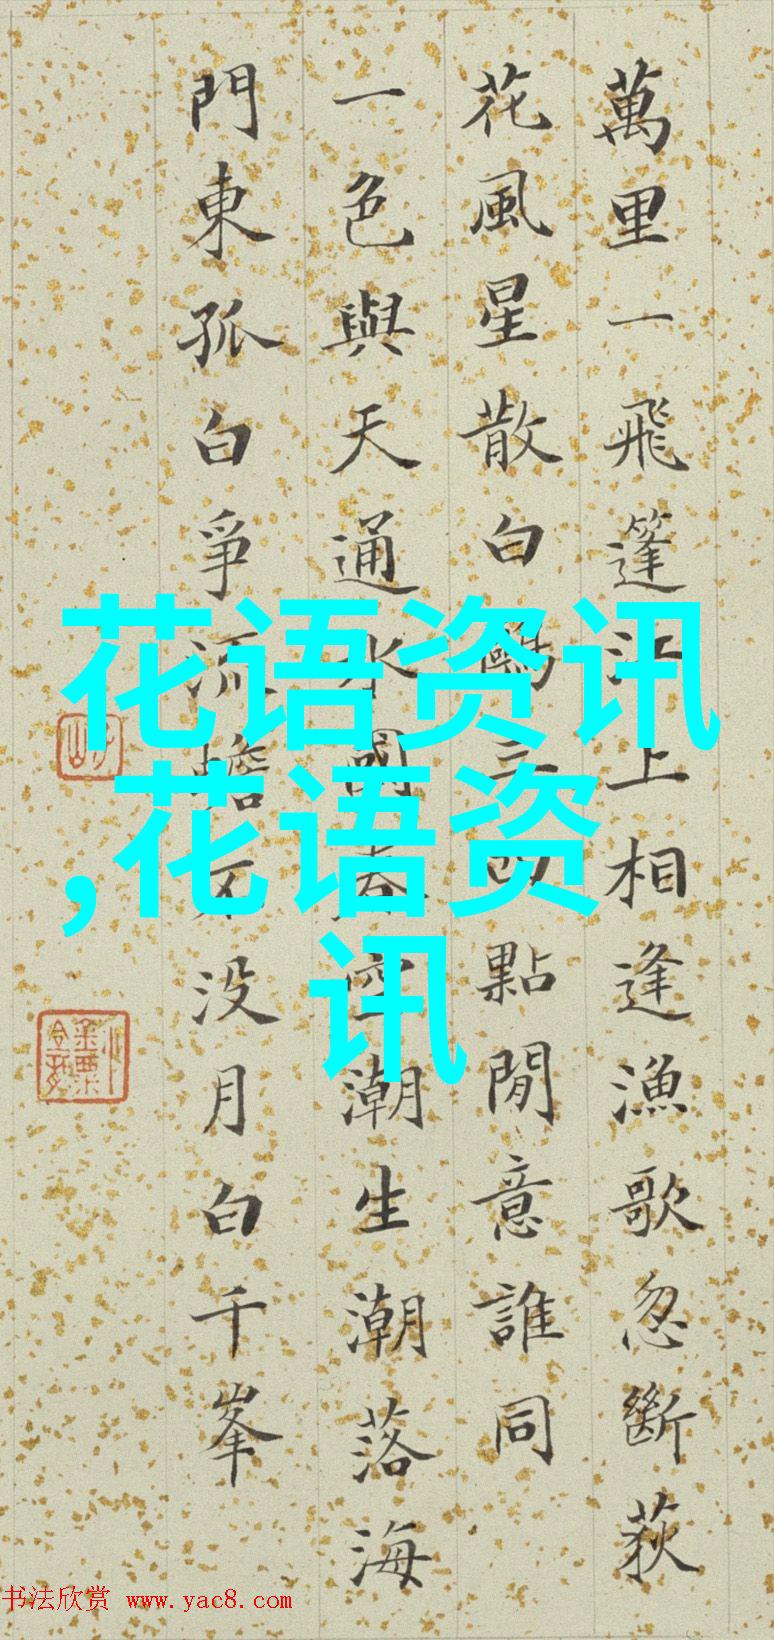 萬里一飛篷江上相逢漁歌忽斷荻
花風星散白鷗三四點閒意誰同
一色與天通水國春空潮生潮落海
門東孤白爭流蟾不没月白千峯
花语资讯
,花语资
讯
书法欣赏 www.yac8.com